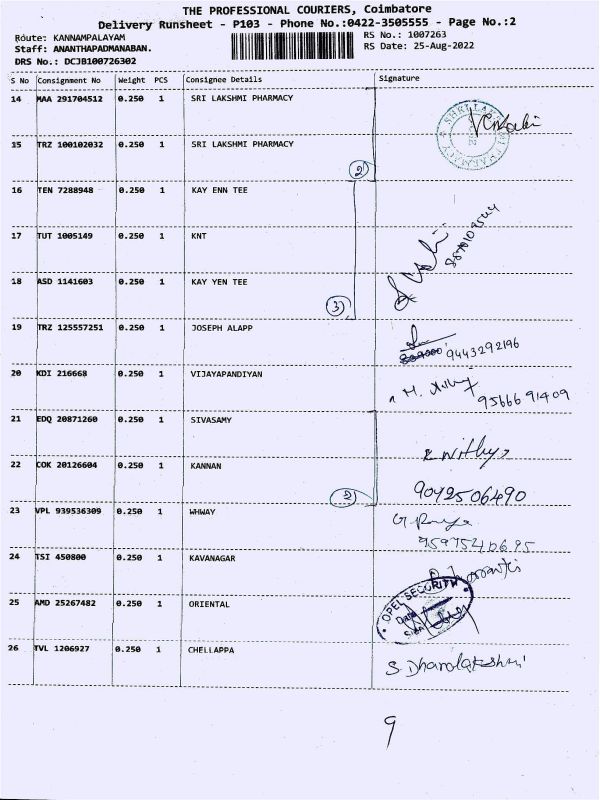 THE PROFESSIONAL COURIERS, Coimbatore
Delivery Runsheet - P103 - Phone No.:0422-3505555 - Page No.:2
Route: KANNAMPALAYAM
RS No.: 1007263
Staff: ANANTHAPADMANABAN.
RS Date: 25-Aug-2022
DRS No.: DCJB100726302
S No Consignment No Weight PCS Consignee Details Signature
14 MAA 291704512 0.250 1 SRI LAKSHMI PHARMACY
15 TRZ 100102032 0.250 1 SRI LAKSHMI PHARMACY
2
16 TEN 7288948 0.250 1 KAY ENN TEE
17 TUT 1005149 0.250 1 KNT
18 ASD 1141603 0.250 1 KAY YEN TEE
3
19 TRZ 125557251 0.250 1 JOSEPH ALAPP
9443292196
20 KDI 216668 0.250 1 VIJAYAPANDIYAN
9566691409
21 EDQ 20871260 0.250 1 SIVASAMY
22 COK 20126604 0.250 1 KANNAN
2
9042506490
23 VPL 939536309 0.250 1 WHWAY
24 TSI 450800 0.250 1 KAVANAGAR
25 AMD 25267482 0.250 1 ORIENTAL
OPEL SECURITY
26 TVL 1206927 0.250 1 CHELLAPPA
S. Dhanalakshmi
9